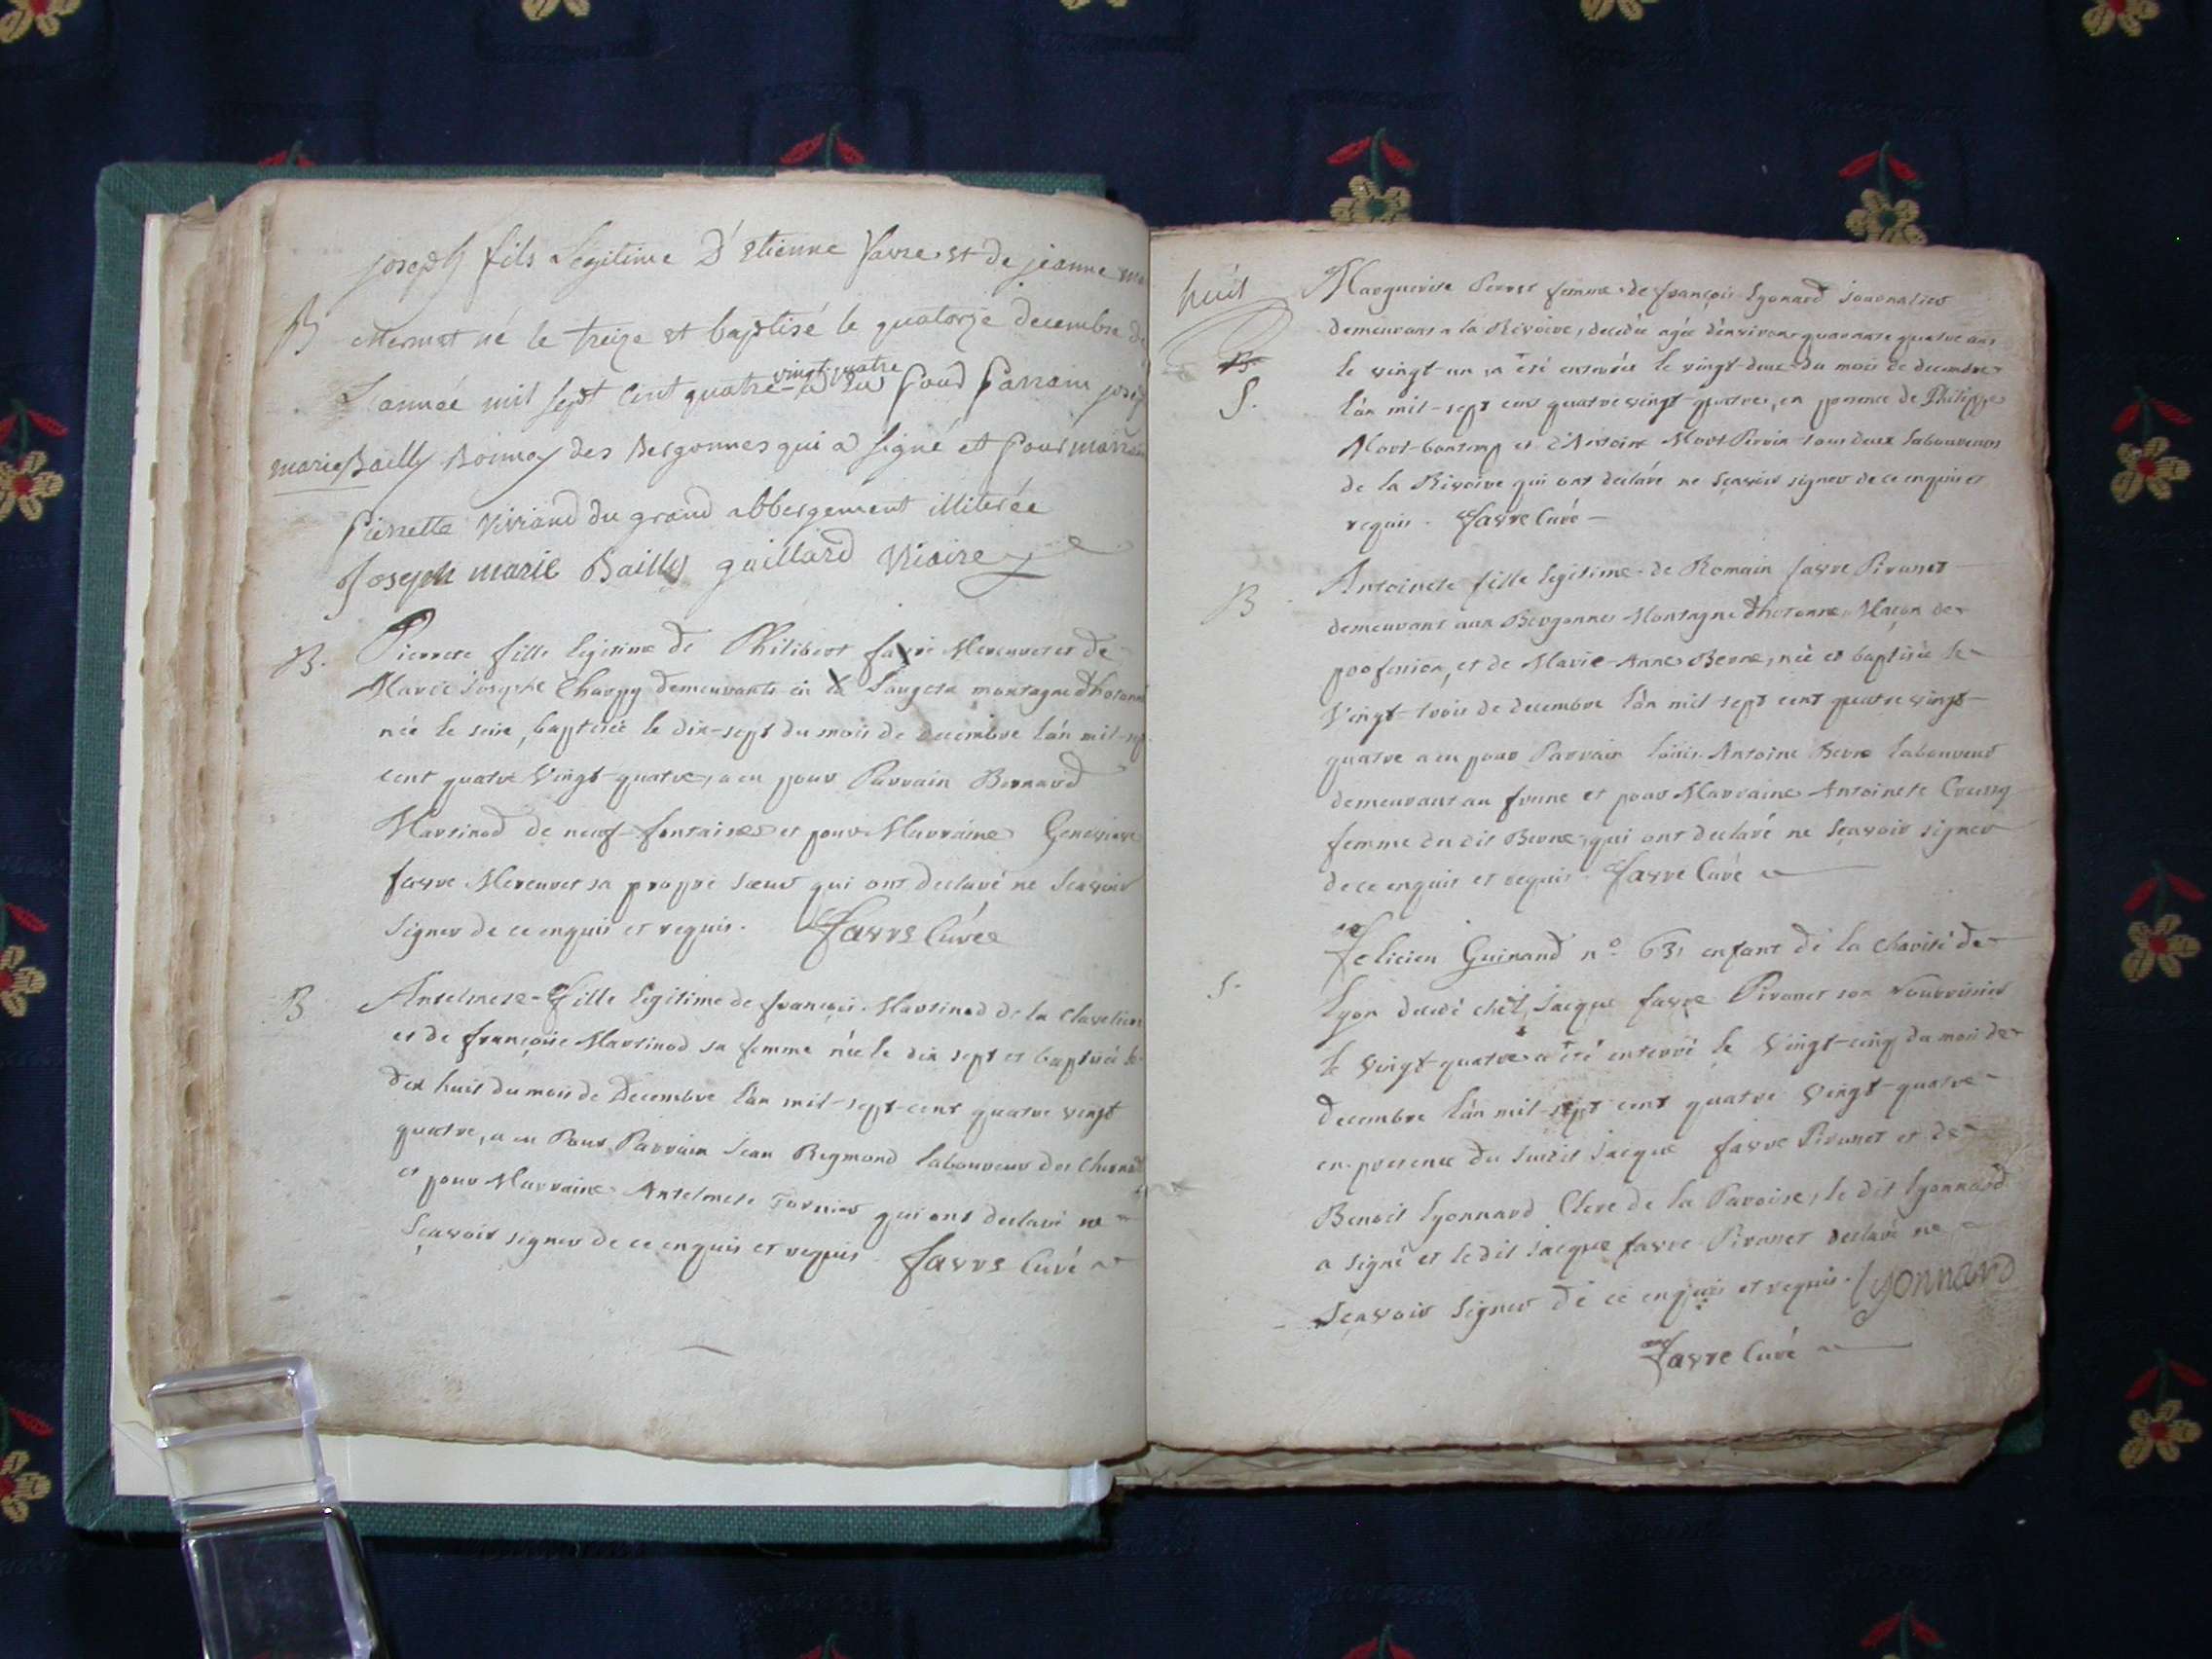 joseph fils Légitime D'Etienne favre et de jeanne
B
Mermet né le treize et baptisé le quatorze decembre de
vingt quatre
L'année mil sept Cent quatre a eu pour Parrain
marie Bailly Boimoy des Bergonnes qui a signé et pour
Pierrette Viviand du grand abbergement illiterée
Joseph marie Bailly gaillard Vicaire
B. Pierrete fille legitime de Philibert favre Mereuret et de
Marie Josephe Charpy demeurants en la Laugere montagne d'hotonne
née le seize, baptisée le dix-sept du mois de decembre l'an mil-
cent quatre vingt-quatre, a eu pour Parrain Bernard
Martinod de neuf-fontaines et pour Marraine Genevieve
favre Mereuret sa propre sœur qui ont declaré ne Scavoir
signer de ce enquis et requis. favre Curée
B Antelmete fille legitime de françois Martinod de la Claveliere
et de françoise Martinod sa femme née le dix sept et baptisée le
dix huit du mois de Decembre l'an mil-sept-cent quatre vingt
quatre, a eu Pour Parrain Jean Reymond laboureur des
et pour Marraine Antelmete Tornier qui ont declaré ne
Sçavoir signer de ce enquis et requis favre Curé
huit
Marguerite Perret femme de françois Lyonard journalier
demeurant a la Rivoire, decédée agée d'environ quarante quatre ans
B.
le vingt-un a été enterrée le vingt-deux du mois de decembre
S.
l'an mil-sept cent quatre vingt-quatre, en presence de Philippe
Mort-bontemp et d'Antoine Mort Perrin tous deux laboureurs
de la Rivoire qui ont declaré ne sçavoir signer de ce enquis et
requis. favre Curé
B Antoinete fille legitime de Romain favre Pirunet
demeurant aux Bergonnes Montagne d'hotonne, Maçon de
profession, et de Marie-Anne Berne, née et baptisée le
vingt-trois de decembre l'an mil sept cent quatre vingt-
quatre a eu pour Parrain Loüis Antoine Berne laboureur
demeurant au et pour Marraine Antoinete
femme du dit Berne, qui ont declaré ne sçavoir signer
de ce enquis et requis. favre Curé
felicien Guinand n.º 631 enfant de la charité de
S.
Lyon decedé chét Jacque favre Pirunet son nourrisier
le vingt-quatre a été enterré le vingt-cinq du mois de
decembre l'an mil-sept cent quatre vingt-quatre
en presence du susdit Jacque favre Pirunet et de
Benoit lyonnard Clerc de la Paroise, le dit lyonnard
a signé et le dit Jacque favre Pirunet declaré ne
sçavoir signer de ce enquis et requis. lyonnard
favre Curé